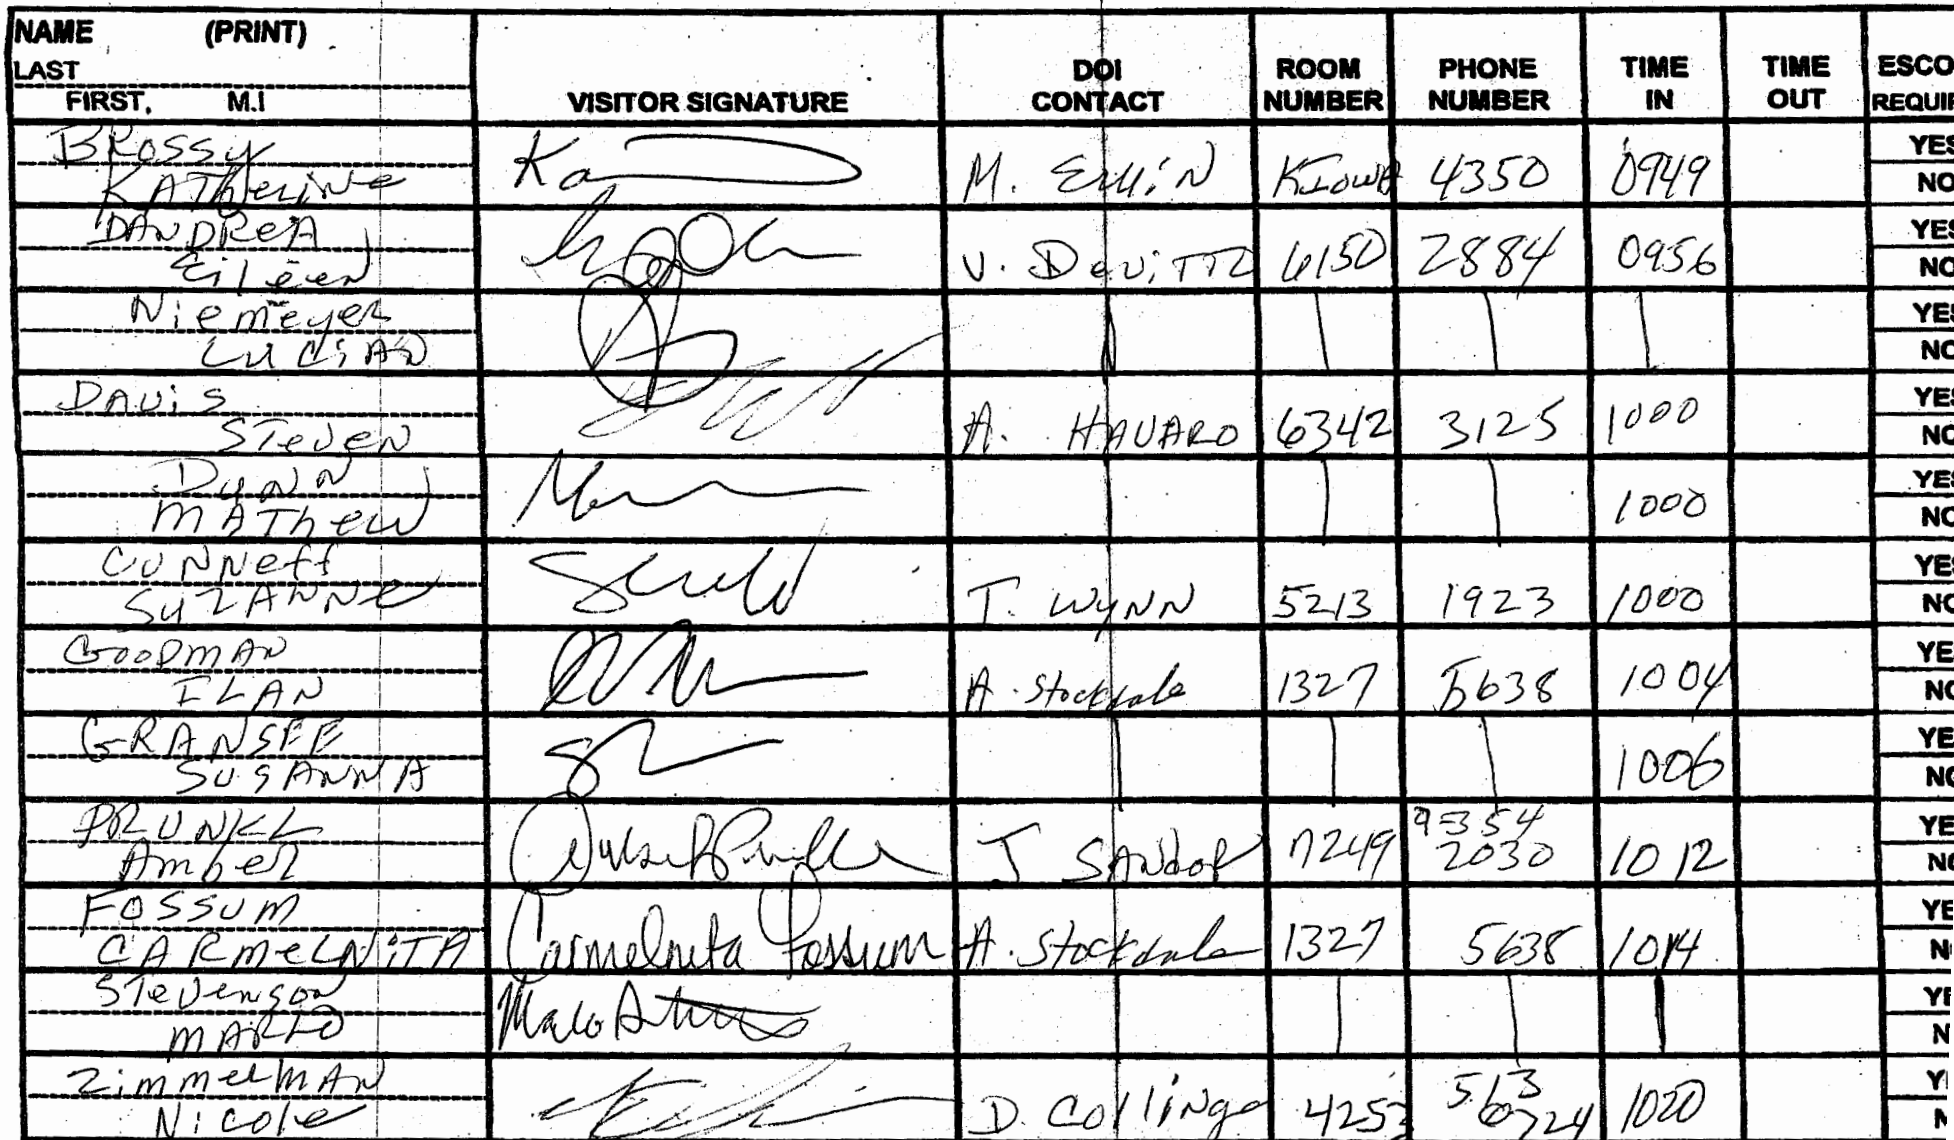 NAME (PRINT)
LAST
FIRST, M.I
VISITOR SIGNATURE
DOI CONTACT
ROOM NUMBER
PHONE NUMBER
TIME IN
TIME OUT
ESCO
REQUIR
BROSSY
KATherine
M. KIOWA 4350 0949
YES
NO
DANDREA
Eileen
V. DeviTTZ 6150 2884 0956
YES
NO
Niemeyer
LUCIAN
YES
NO
DAViS
STeven
A. HAVARD 6342 3125 1000
YES
NO
DUNN
MATHew
1000
YES
NO
CUNNeff
SUZANNe
T. WYNN 5213 1923 1000
YES
NO
GOODMAN
ILAN
A. Stockdale 1327 5638 1004
YE
NO
GRANSEE
SUSANNA
1006
YE
NO
PRUNKL
Amber
J SANDOR 7249 9-354 2030 1012
YE
NO
FOSSUM
CARMELNITA
Carmelnita Fossum
A. Stockdale 1327 5638 1014
YE
N
STevenson
MARIO
YE
N
ZimmerMAN
Nicole
D. Collings 4253 513 0724 1020
YI
N